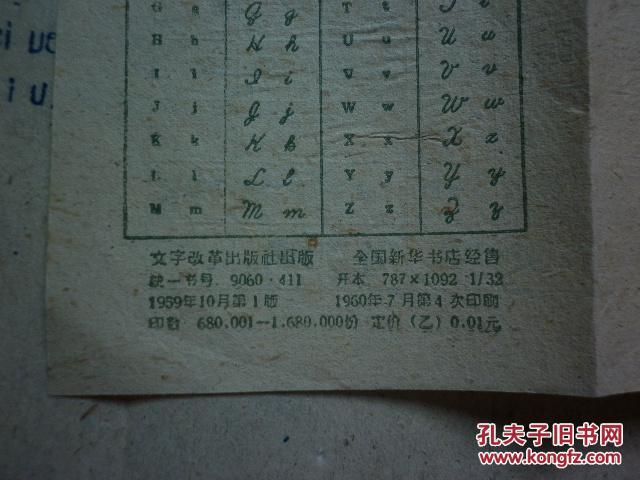 G g G g T t T t
H h H h U u U u
I i I i V v V v
J j J j W w W w
K k K k X x X x
L l L l Y y Y y
M m M m Z z Z z
文字改革出版社出版 全国新华书店经售
统一书号 9060·411 开本 787×1092 1/32
1959年10月第1版 1960年7月第4次印刷
印数 680,001—1,680,000份 定价(乙) 0.01元
孔夫子旧书网
www.kongfz.com